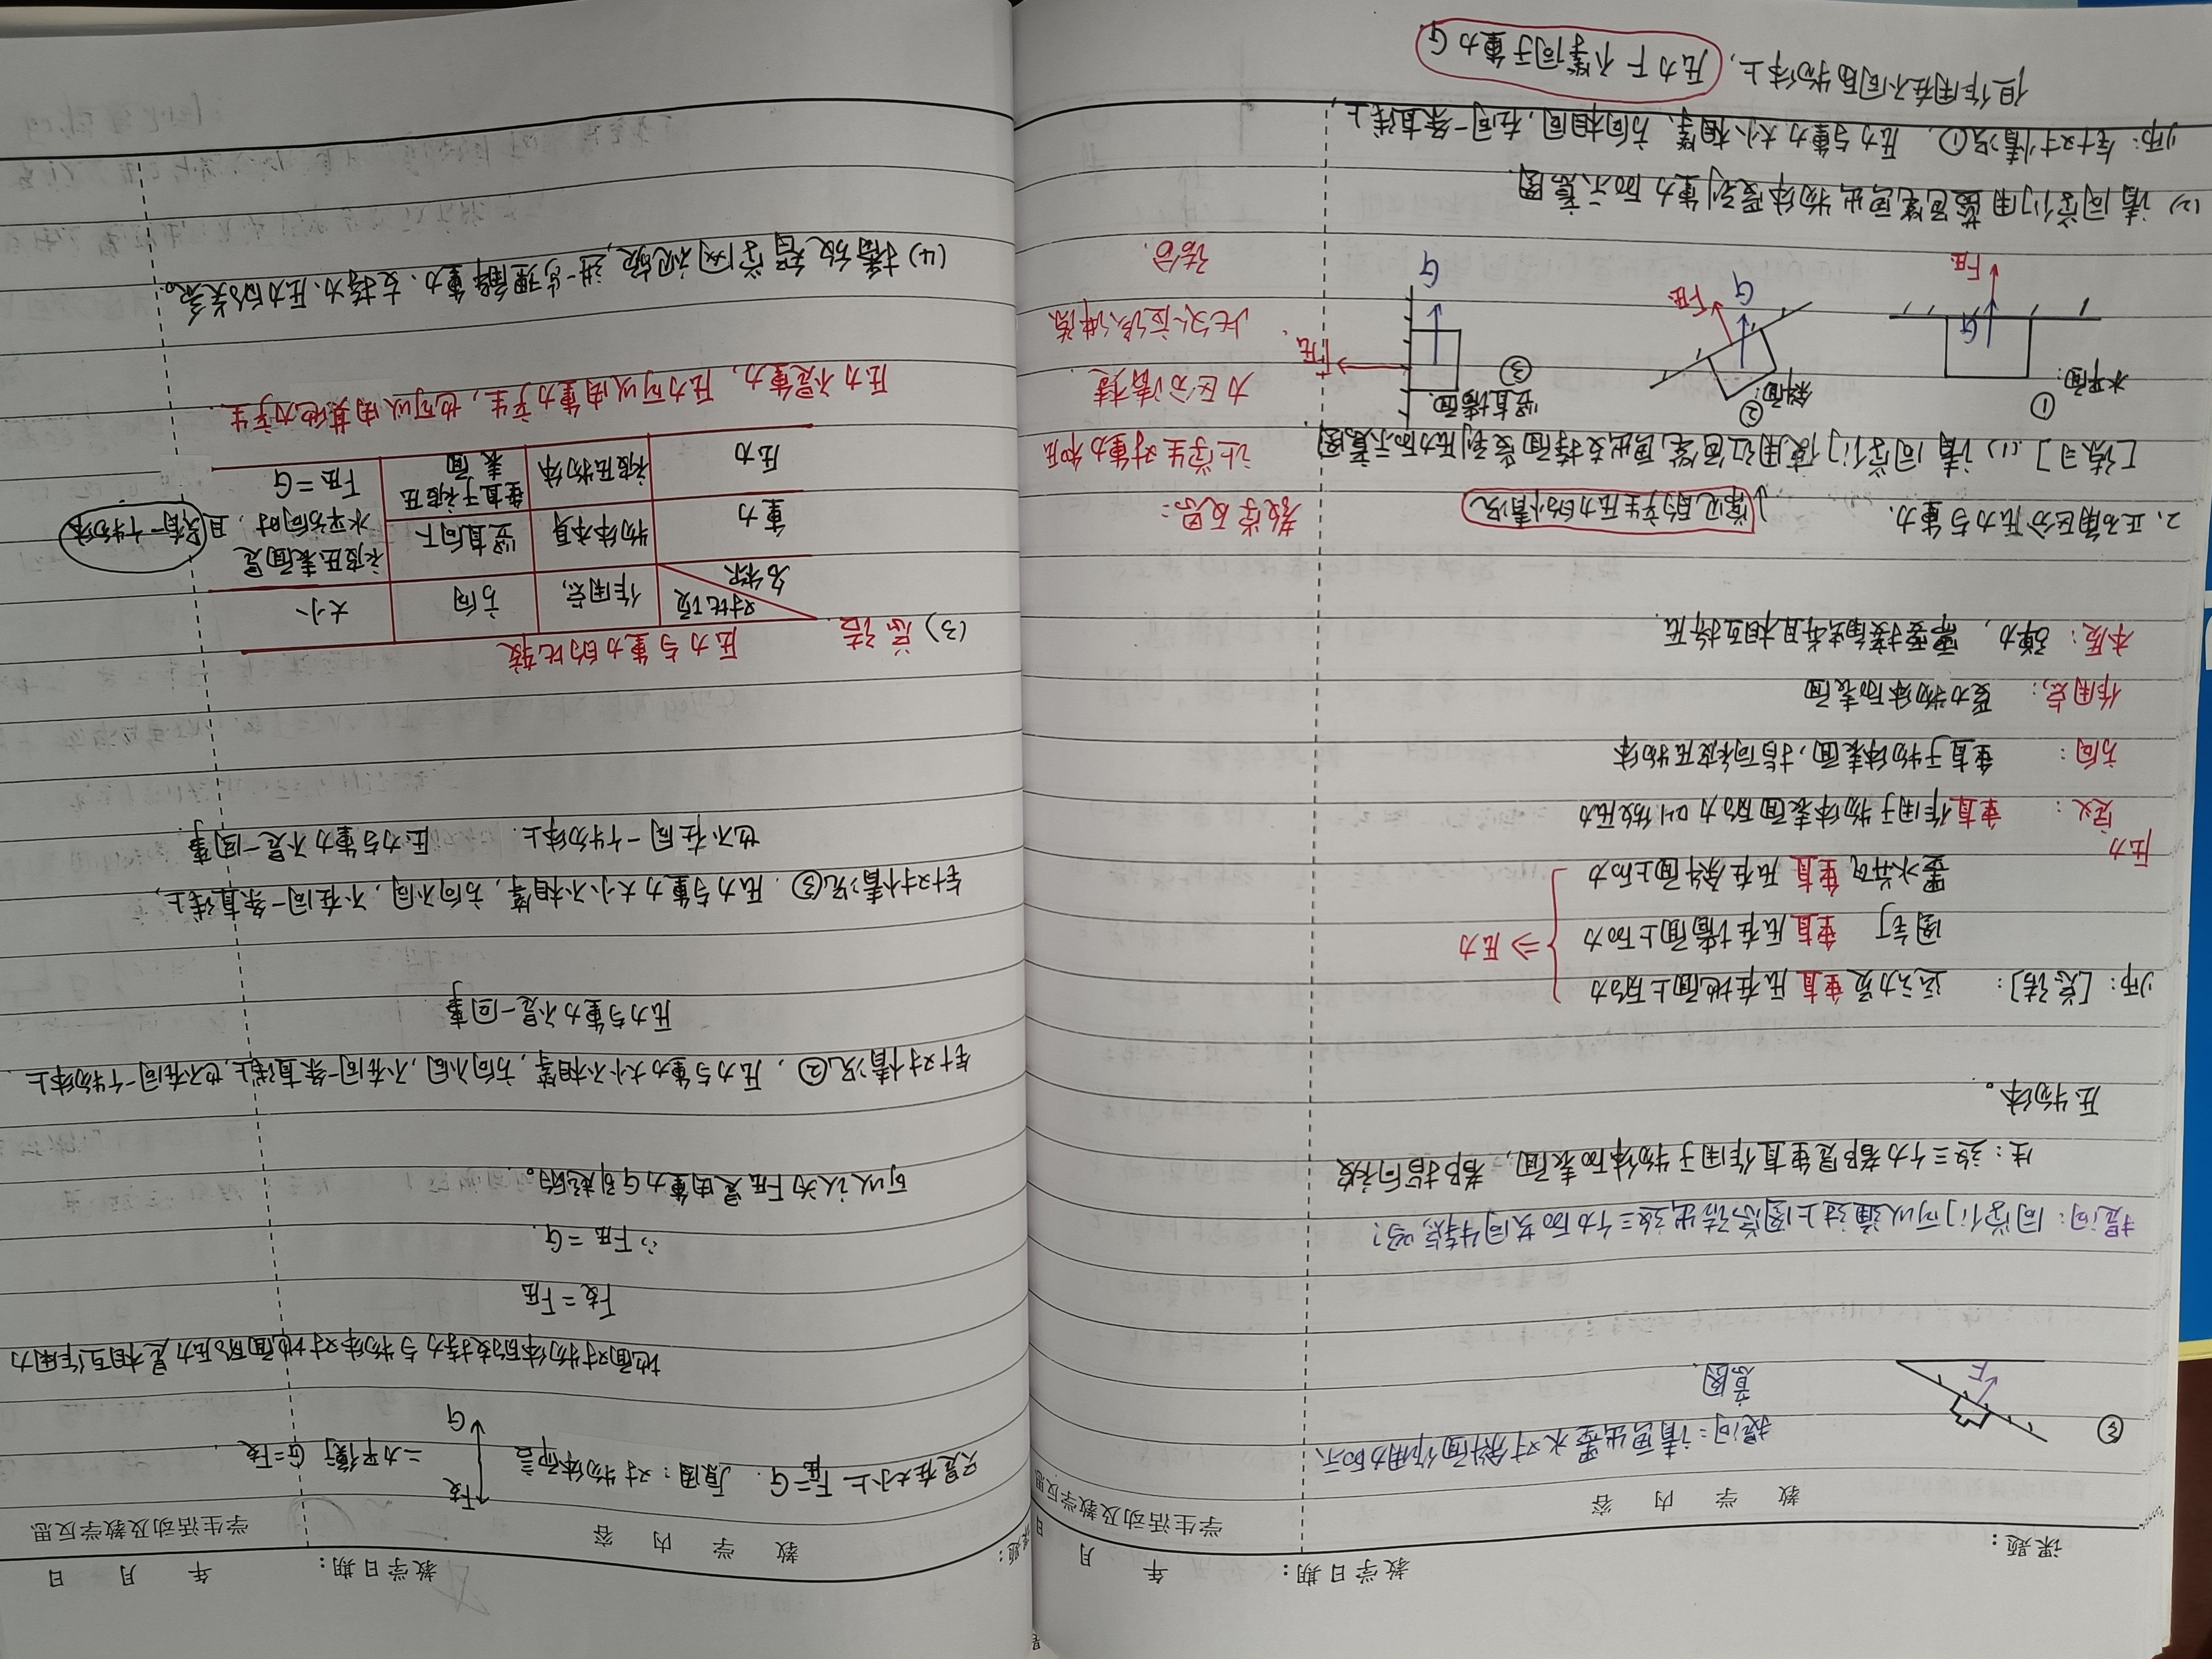 课题：
教学日期： 年 月 日
教 学 内 容
学生活动及教学反思
③
F
提问：请画出墨水对斜面作用力的示
意图
提问：同学们可以通过上图总结出这三个力的共同特点吗？
生：这三个力都是垂直作用于物体的表面，都指向被
压物体。
师：[总结]： 运动员垂直压在地面上的力
图钉 垂直压在墙面上的力
墨水并可垂直压在斜面上的力
⇒ 压力
压力
定义： 垂直作用于物体表面的力叫做压力
方向： 垂直于物体表面，指向被压物体
作用点： 受力物体的表面
本质：弹力，需要接触并且相互挤压.
2、正确区分压力与重力.
常见的产生压力的情况
教学反思：
[练习] (1) 请同学们使用红色笔画出支持面受到压力的示意图.
让学生对重力和压
力区分清楚.
此处应该讲练
结合.
水平面：
①
G
F压
斜面：
②
G
F压
竖直墙面：
③
F压
G
(2) 请同学们用蓝色笔画出物体受到重力的示意图.
师：针对情况①，压力与重力大小相等，方向相同，在同一条直线上，
但作用在不同的物体上，压力F不等同于重力G
课题：
教学日期： 年 月 日
教 学 内 容
学生活动及教学反思
只是在大小上 F压=G. 原因：对物体而言
F支
G
二力平衡 G=F支，
地面对物体的支持力与物体对地面的压力是相互作用力
F支=F压
∴F压=G.
可以认为F压是由重力G引起的。
针对情况②，压力与重力大小不相等，方向不同，不在同一条直线上，也不在同一个物体上.
压力与重力不是一回事
针对情况③. 压力与重力大小不相等，方向不同，不在同一条直线上，
也不在同一个物体上. 压力与重力不是一回事.
(3) 总结.
压力与重力的比较
对比项
名称
作用点
方向
大小
重力
物体本身
竖直向下
被压表面是
水平方向时，且只有一个物体
F压=G
压力
被压物体
垂直于被压
表面
压力不是重力，压力可以由重力产生，也可以由其他力产生.
(4) 播放智学网视频，进一步理解重力、支持力、压力的关系。